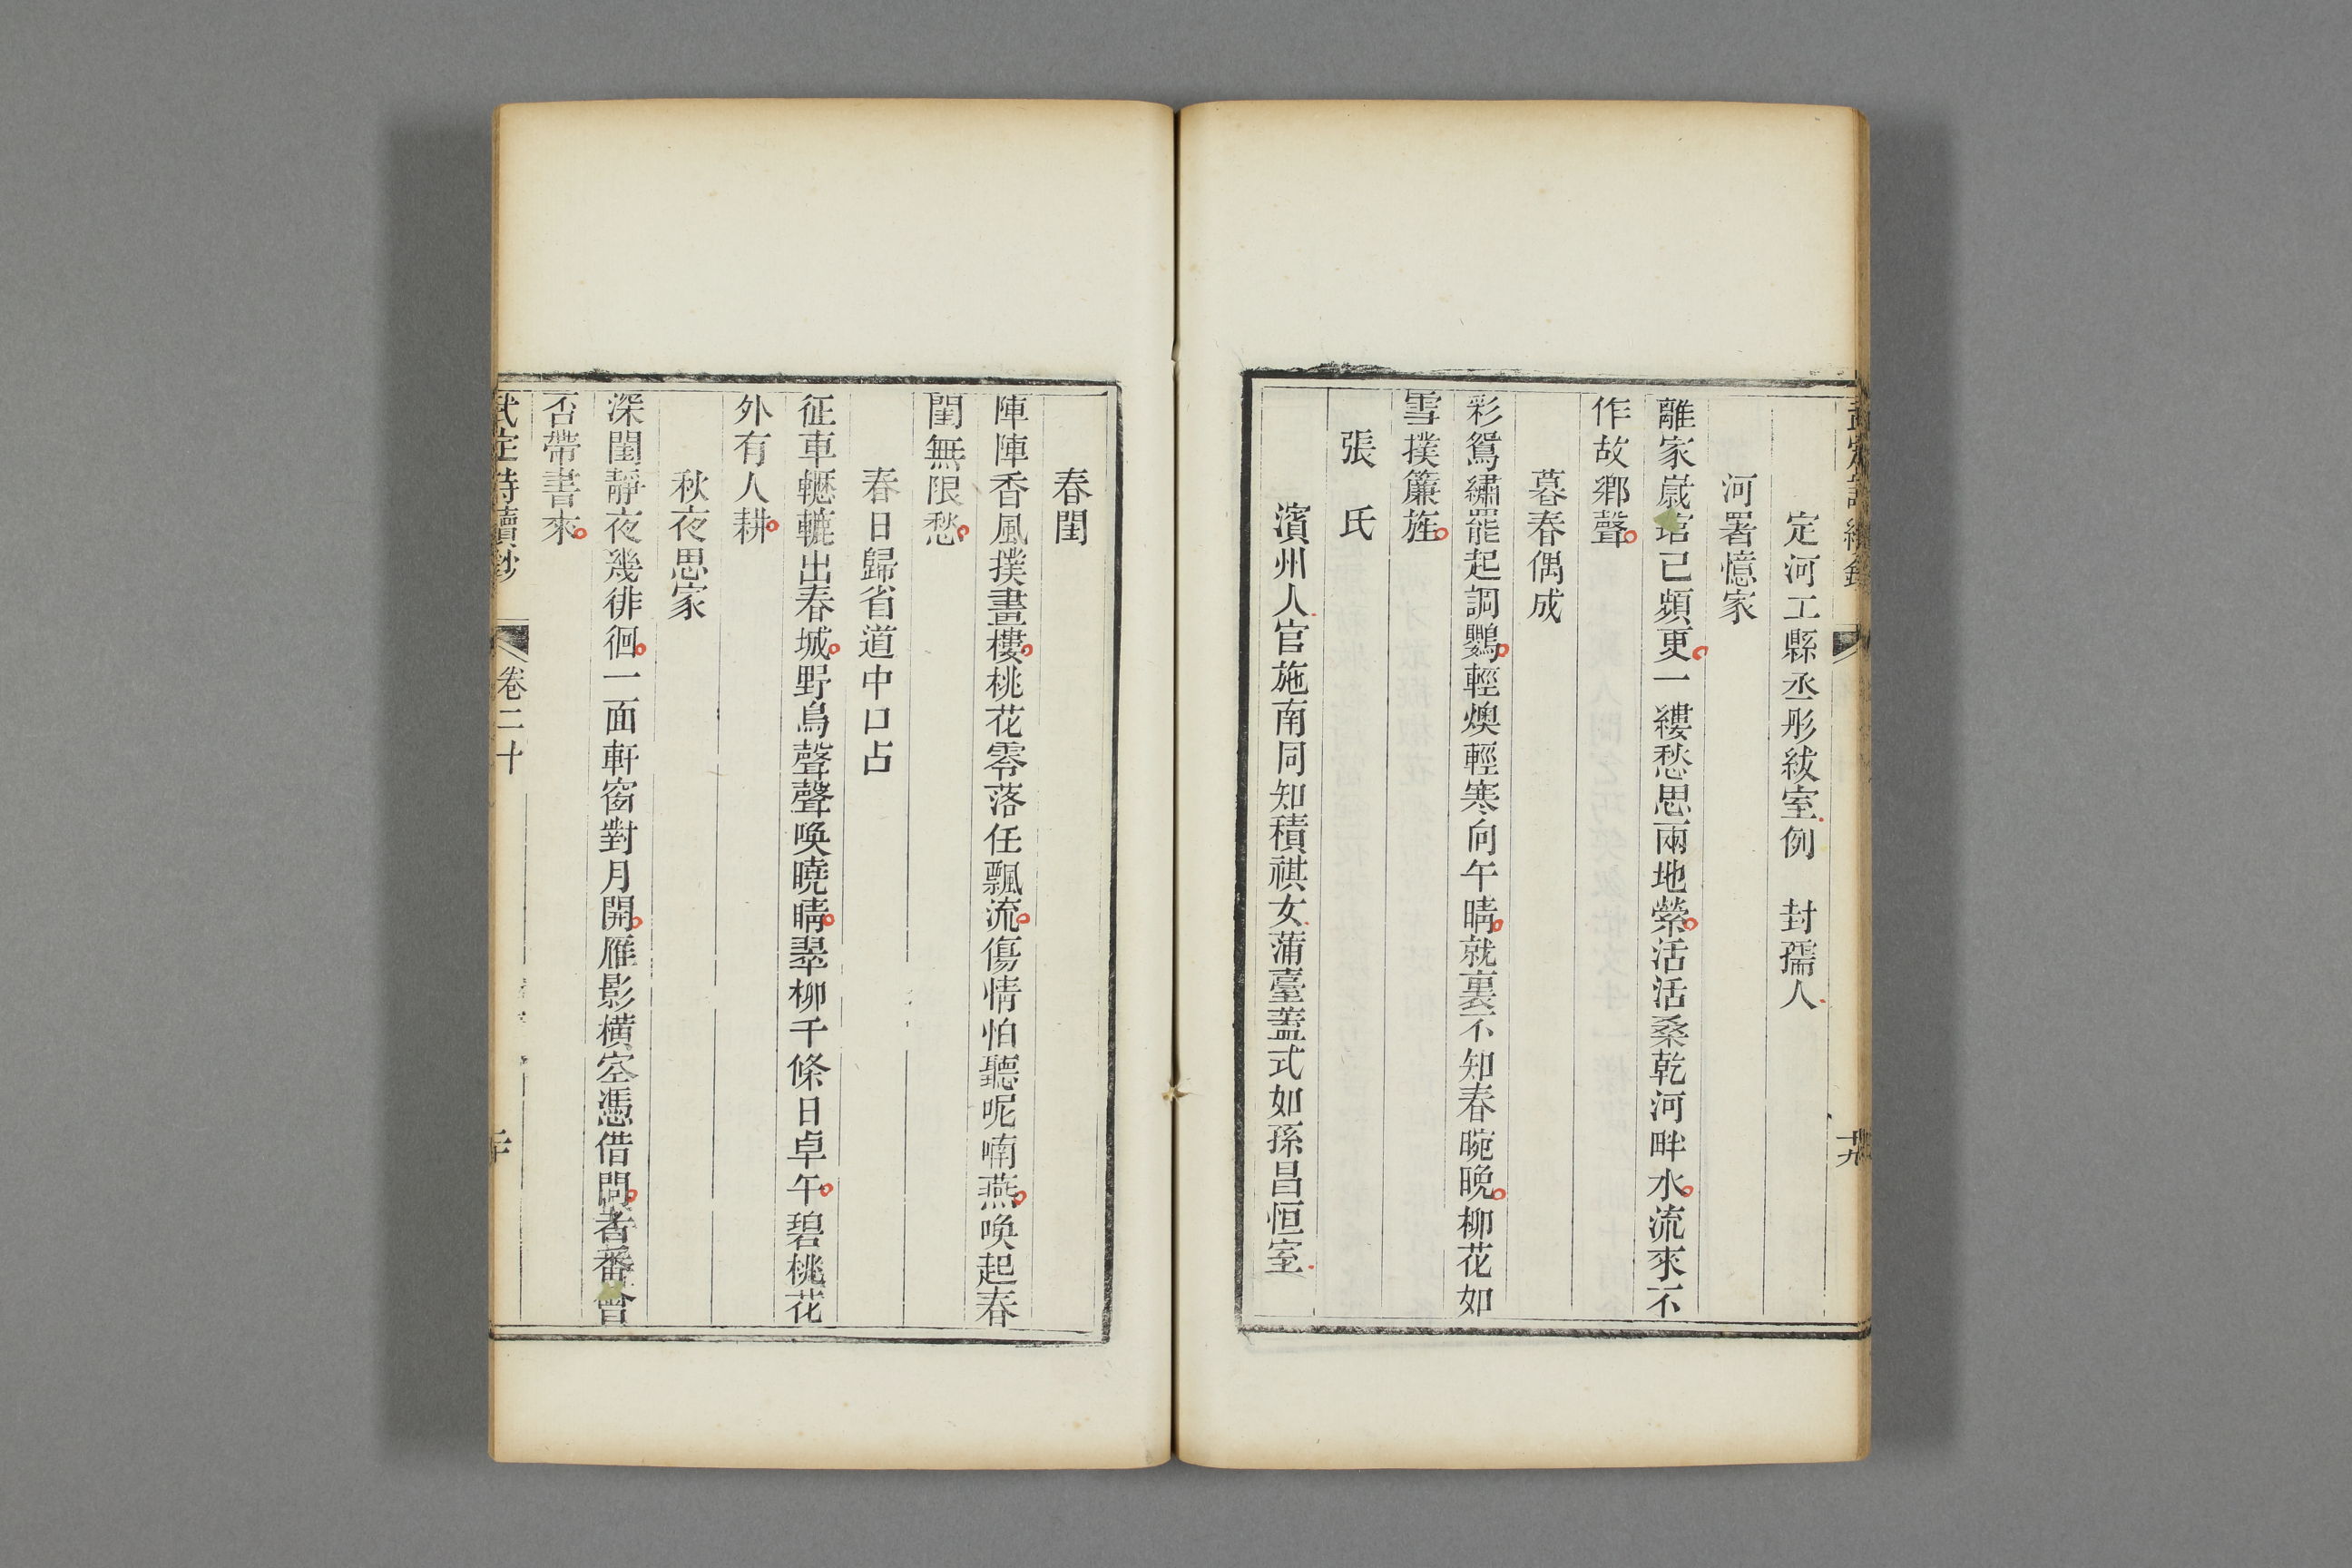 定河工縣丞彤紱室例　封孺人
河署憶家
離家嵗琯已頻更一縷愁思兩地縈活活桑乾河畔水流來不
作故鄉聲
暮春偶成
彩鴛繡罷起調鸚輕燠輕寒向午晴就裏不知春晼晚柳花如
雪撲簾旌
張　氏
濱州人官施南同知積祺女蒲臺蓋式如孫昌恒室
春閨
陣陣香風撲畫樓桃花零落任飄流傷情怕聽呢喃燕喚起春
閨無限愁
春日歸省道中口占
征車轣轆出春城野鳥聲聲喚曉晴翠柳千條日卓午碧桃花
外有人耕
秋夜思家
深閨靜夜幾徘徊一面軒窗對月開雁影橫空憑借問者番曾
否帶書來
武定詩續鈔　卷二十